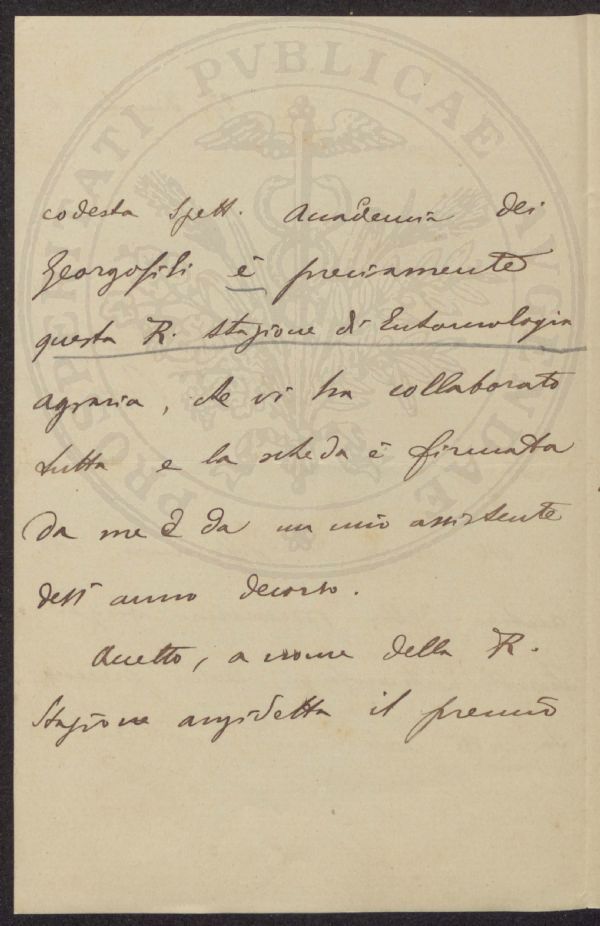 PROSPERITATI PVBLICAE AVGENDAE
codesta Spett. Accademia dei
Georgofili è precisamente
questa R. Stazione di Entomologia
agraria, che vi ha collaborato
tutta e la scheda è firmata
da me e da un mio assistente
dell' anno decorso.
Accetto, a nome della R.
Stazione anzidetta il premio